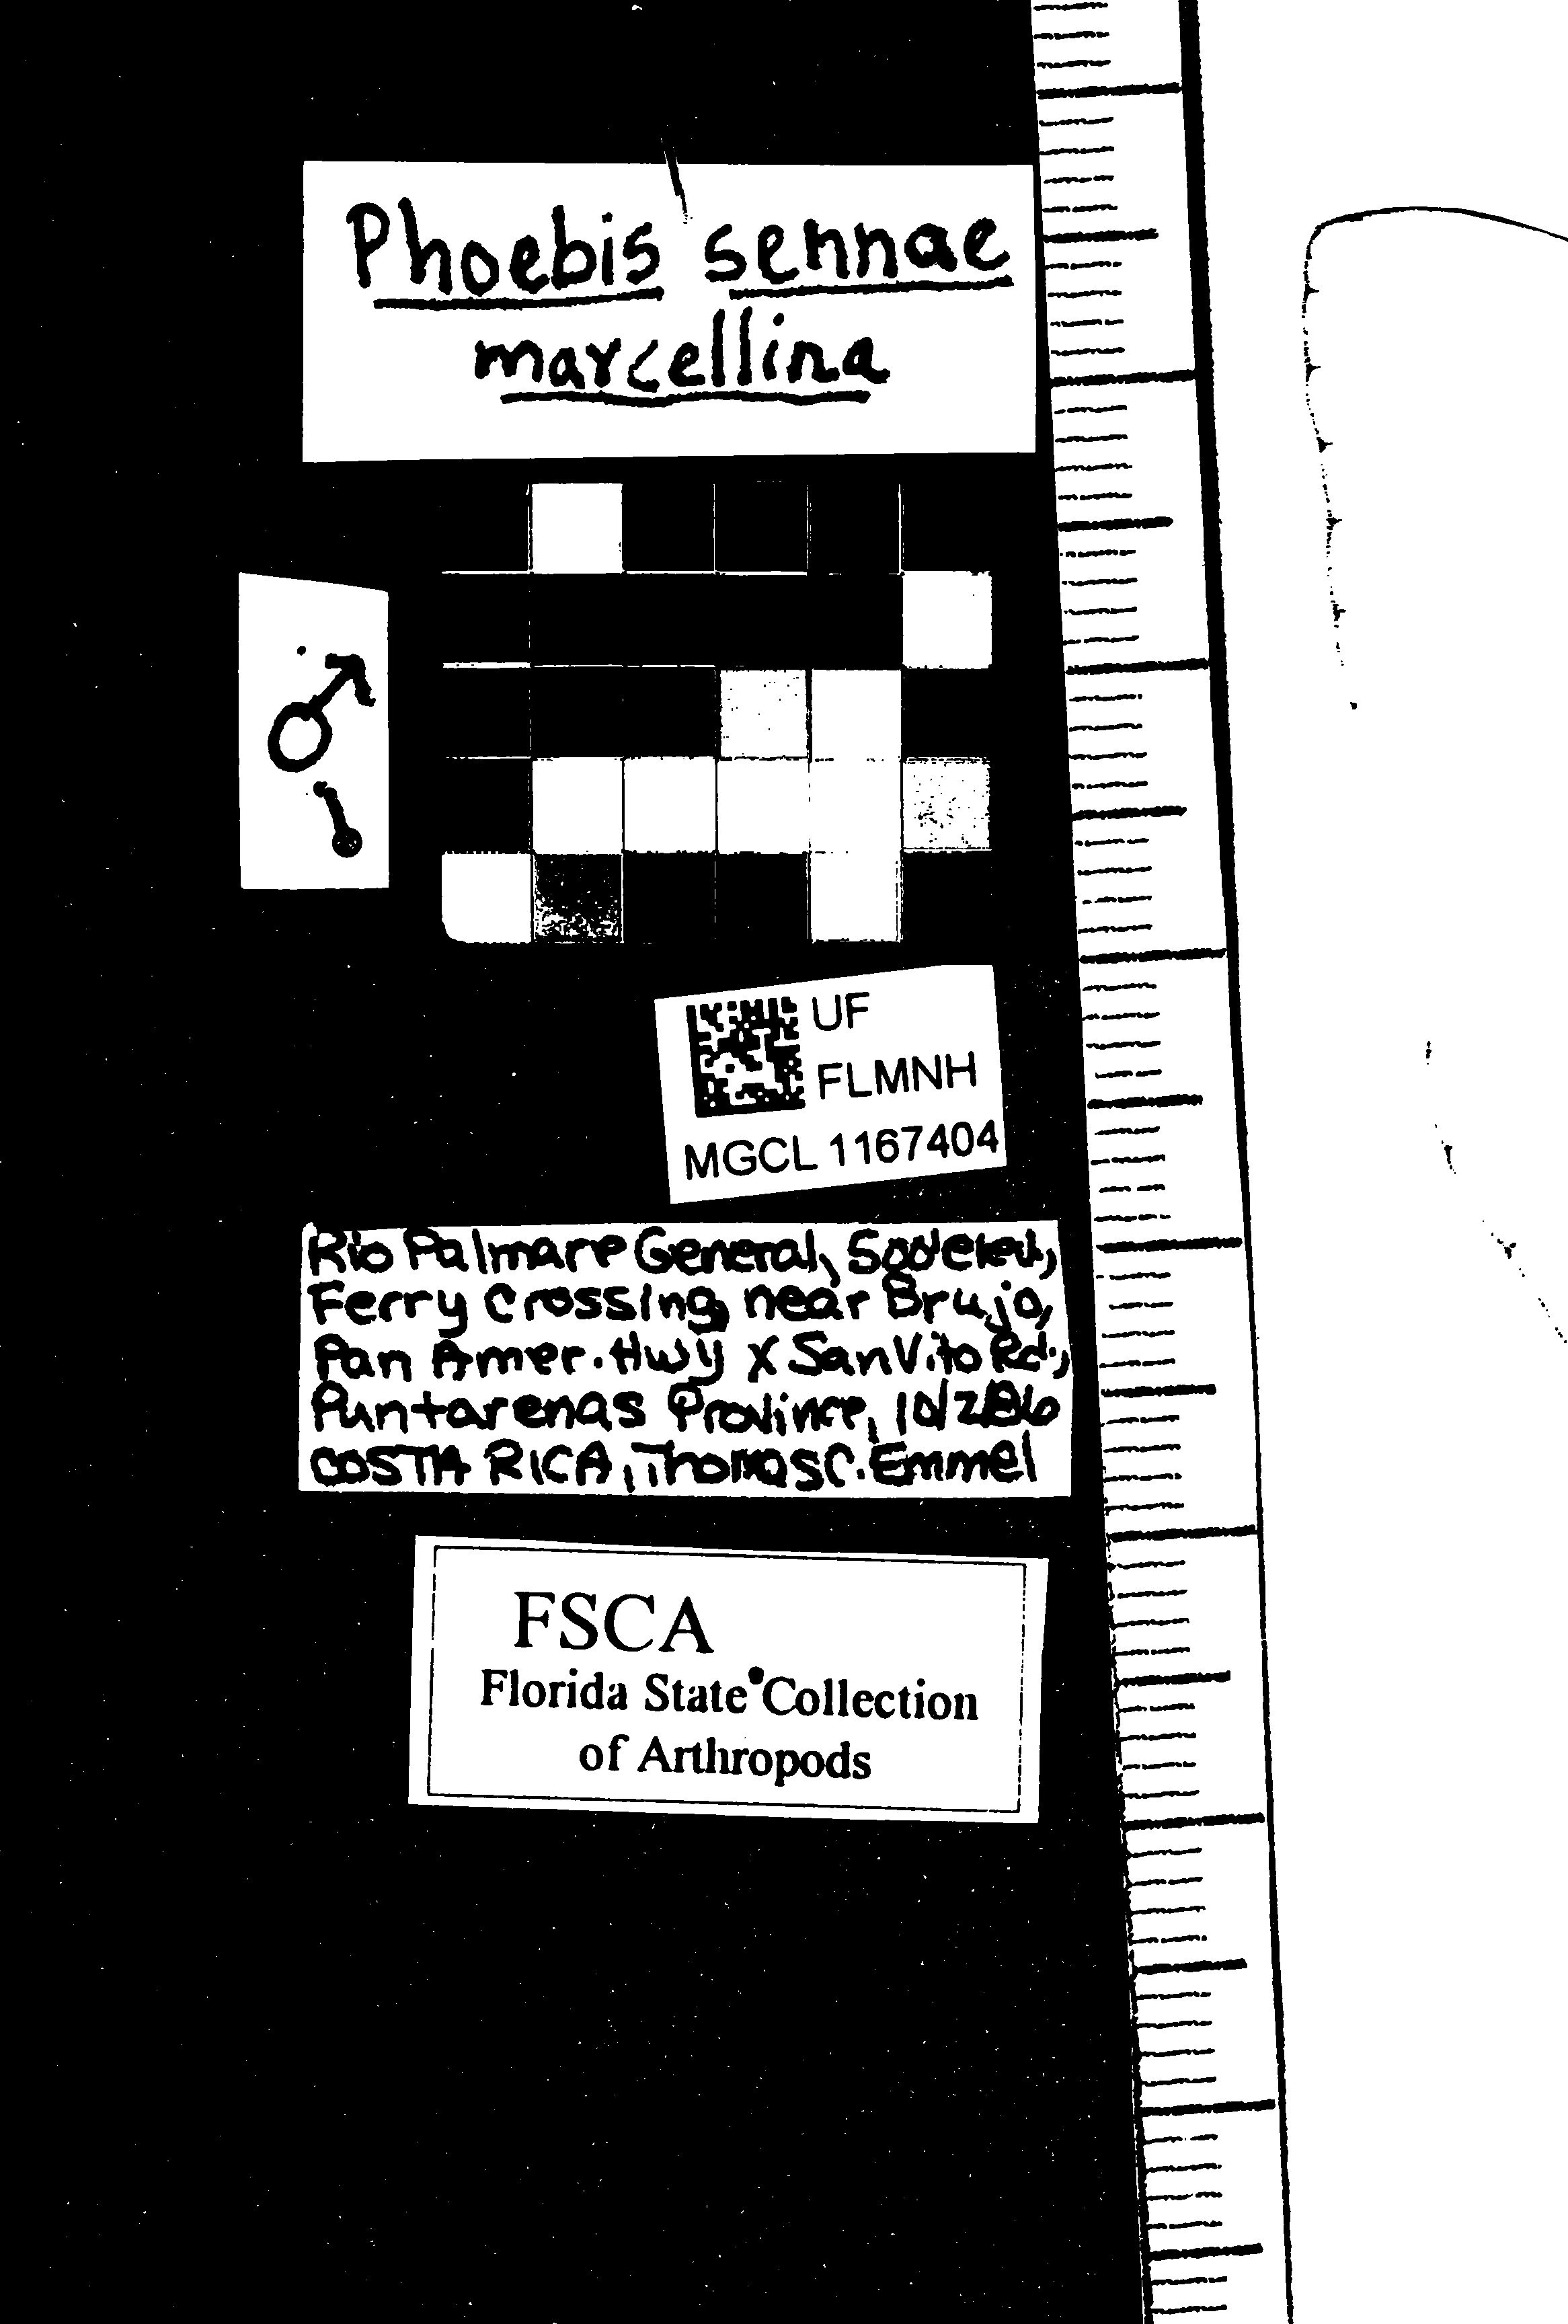 Phoebis sennae
marcellina
♂
UF
FLMNH
MGCL 1167404
Rio Palmare General,
Ferry Crossing, near Brujo,
Pan Amer. Hwy X San Vito Rd.,
Puntarenas Province, 10/2/86
COSTA RICA, Thomas C. Emmel
FSCA
Florida State Collection
of Arthropods